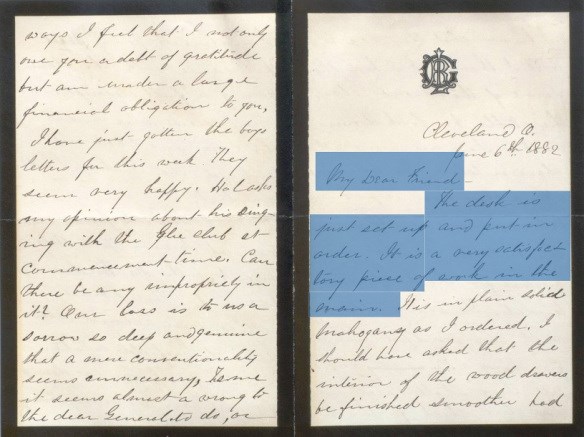 ways I feel that I not only
owe you a debt of gratitude
but am under a large
financial obligation to you,
I have just gotten the boys
letters for this week They
seem very happy. Hal asks
my opinion about his sing-
ing with the Glee Club at
Commencement time. Can
there be any impropriety in
it? Our loss is to us a
sorrow so deep and genuine
that a mere conventionality
seems unnecessary, To me
it seems almost a wrong to
the dear General to do, or
Cleveland O.
June 6th 1882
My Dear Friend
The desk is
just set up and put in
order. It is a very satisfac-
tory piece of work in the
main. It is in plain solid
Mahogany as I ordered. I
should have asked that the
interior of the wood drawers
be finished smoother had